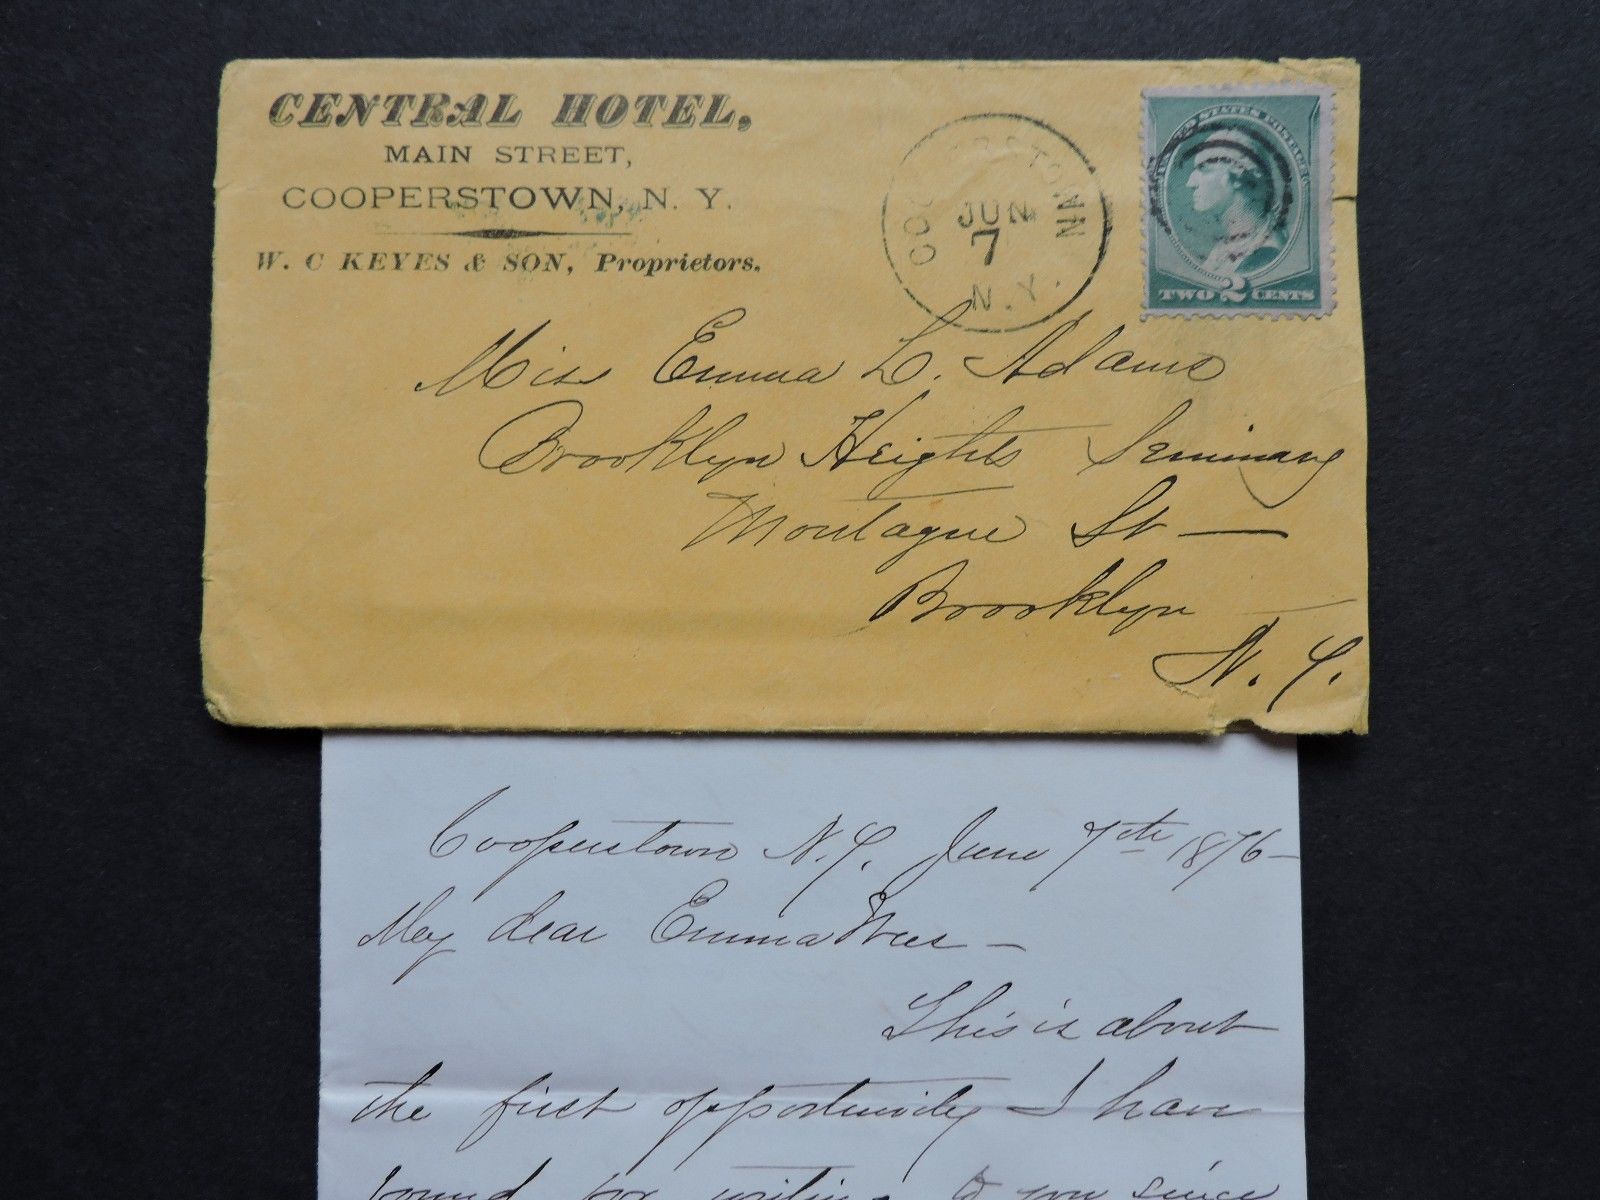 CENTRAL HOTEL,
MAIN STREET,
COOPERSTOWN, N. Y.
W. C KEYES & SON, Proprietors.
COOPERSTOWN
JUN
7
N.Y.
UNITED STATES POSTAGE
TWO 2 CENTS
Miss Emma L. Adams
Brooklyn Heights Seminary
Montague St —
Brooklyn
N. Y.
Cooperstown N.Y. June 7th 1876 -
My dear Emma -
This is about
the first opportunity I have
found for writing to you since